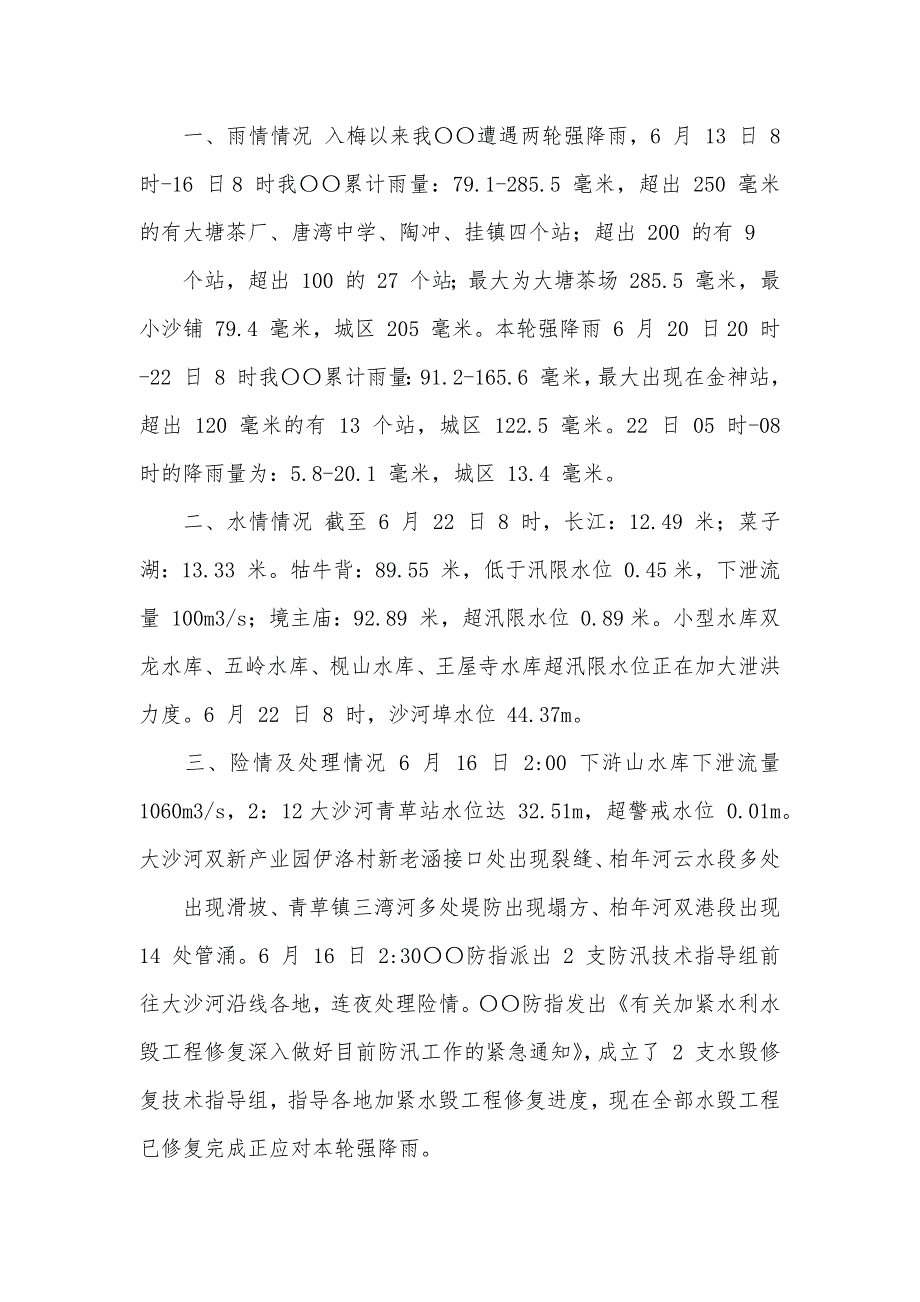 一、雨情情况 入梅以来我〇〇遭遇两轮强降雨，6 月 13 日 8
时-16 日8 时我〇〇累计雨量：79.1-285.5 毫米，超出 250 毫米
的有大塘茶厂、唐湾中学、陶冲、挂镇四个站；超出 200 的有 9
个站，超出 100 的 27 个站；最大为大塘茶场 285.5 毫米，最
小沙铺 79.4 毫米，城区 205 毫米。本轮强降雨 6 月 20 日20 时
-22 日 8 时我〇〇累计雨量：91.2-165.6 毫米，最大出现在金神站，
超出 120 毫米的有 13 个站，城区 122.5 毫米。22 日 05 时-08
时的降雨量为：5.8-20.1 毫米，城区 13.4 毫米。
二、水情情况 截至 6 月 22 日 8 时，长江：12.49 米；菜子
湖：13.33 米。牯牛背：89.55 米，低于汛限水位 0.45米，下泄流
量 100m3/s；境主庙：92.89 米，超汛限水位 0.89米。小型水库双
龙水库、五岭水库、枧山水库、王屋寺水库超汛限水位正在加大泄洪
力度。6 月 22 日 8 时，沙河埠水位 44.37m。
三、险情及处理情况 6 月 16 日 2:00 下浒山水库下泄流量
1060m3/s，2：12大沙河青草站水位达 32.51m，超警戒水位 0.01m。
大沙河双新产业园伊洛村新老涵接口处出现裂缝、柏年河云水段多处
出现滑坡、青草镇三湾河多处堤防出现塌方、柏年河双港段出现
14 处管涌。6 月 16 日 2:30〇〇防指派出 2 支防汛技术指导组前
往大沙河沿线各地，连夜处理险情。〇〇防指发出《有关加紧水利水
毁工程修复深入做好目前防汛工作的紧急通知》，成立了 2 支水毁修
复技术指导组，指导各地加紧水毁工程修复进度，现在全部水毁工程
已修复完成正应对本轮强降雨。